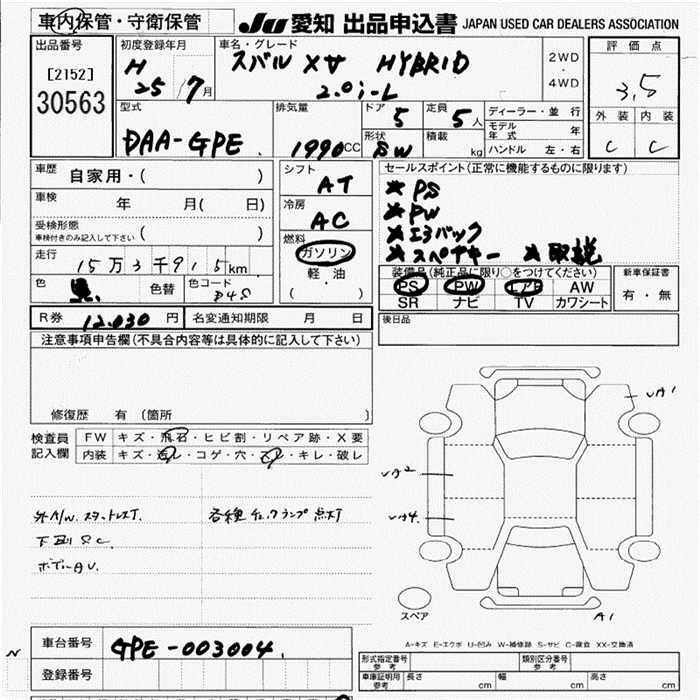 車内保管・守衛保管 JU 愛知 出品申込書 JAPAN USED CAR DEALERS ASSOCIATION
出品番号
[2152]
30563
初度登録年月
H
25 / 7月
車名・グレード
スバル XV HYBRID
2.0i-L
2WD
・
4WD
評価点
3,5
外装 内装
C C
型式
DAA-GPE
排気量
1990CC
ドア 5
定員 5人
形状 SW
積載 kg
ディーラー・並行
モデル年式 年
ハンドル 左・右
車歴 自家用・( )
車検 年 月( 日)
受検形態
車検付きのみ記入して下さい ( )
走行 15万3千915km
色 色替 色コード D4S
R券 12,030円 名変通知期限 月 日
シフト
AT
冷房
AC
燃料
ガソリン
軽・油
( )
セールスポイント(正常に機能するものに限ります)
★ PS
★ PW
★ エアバック
★ スペアキー ★ 取説
装備品(純正品に限り○をつけてください)
PS PW エアB AW
SR ナビ TV カワシート
新車保証書
有・無
後日品
注意事項申告欄(不具合内容等は具体的に記入して下さい)
修復歴 有(箇所 )
検査員記入欄
FW キズ・飛石・ヒビ割・リペア跡・X要
内装 キズ・汚レ・コゲ・穴・スレ・キレ・破レ
外A/W. スタットレスT. 各種チェックランプ点灯
下廻りSC
ボデーAU.
UA1
UA2
UA4
スペア
A1
A-キズ E-エクボ U-凹み W-補修跡 S-サビ C-腐食 XX-交換済
N
車台番号 GPE-003004
登録番号
形式指定番号 参考 類別区分番号 参考
車庫証明用 参考 長さ cm 幅 cm 高さ cm